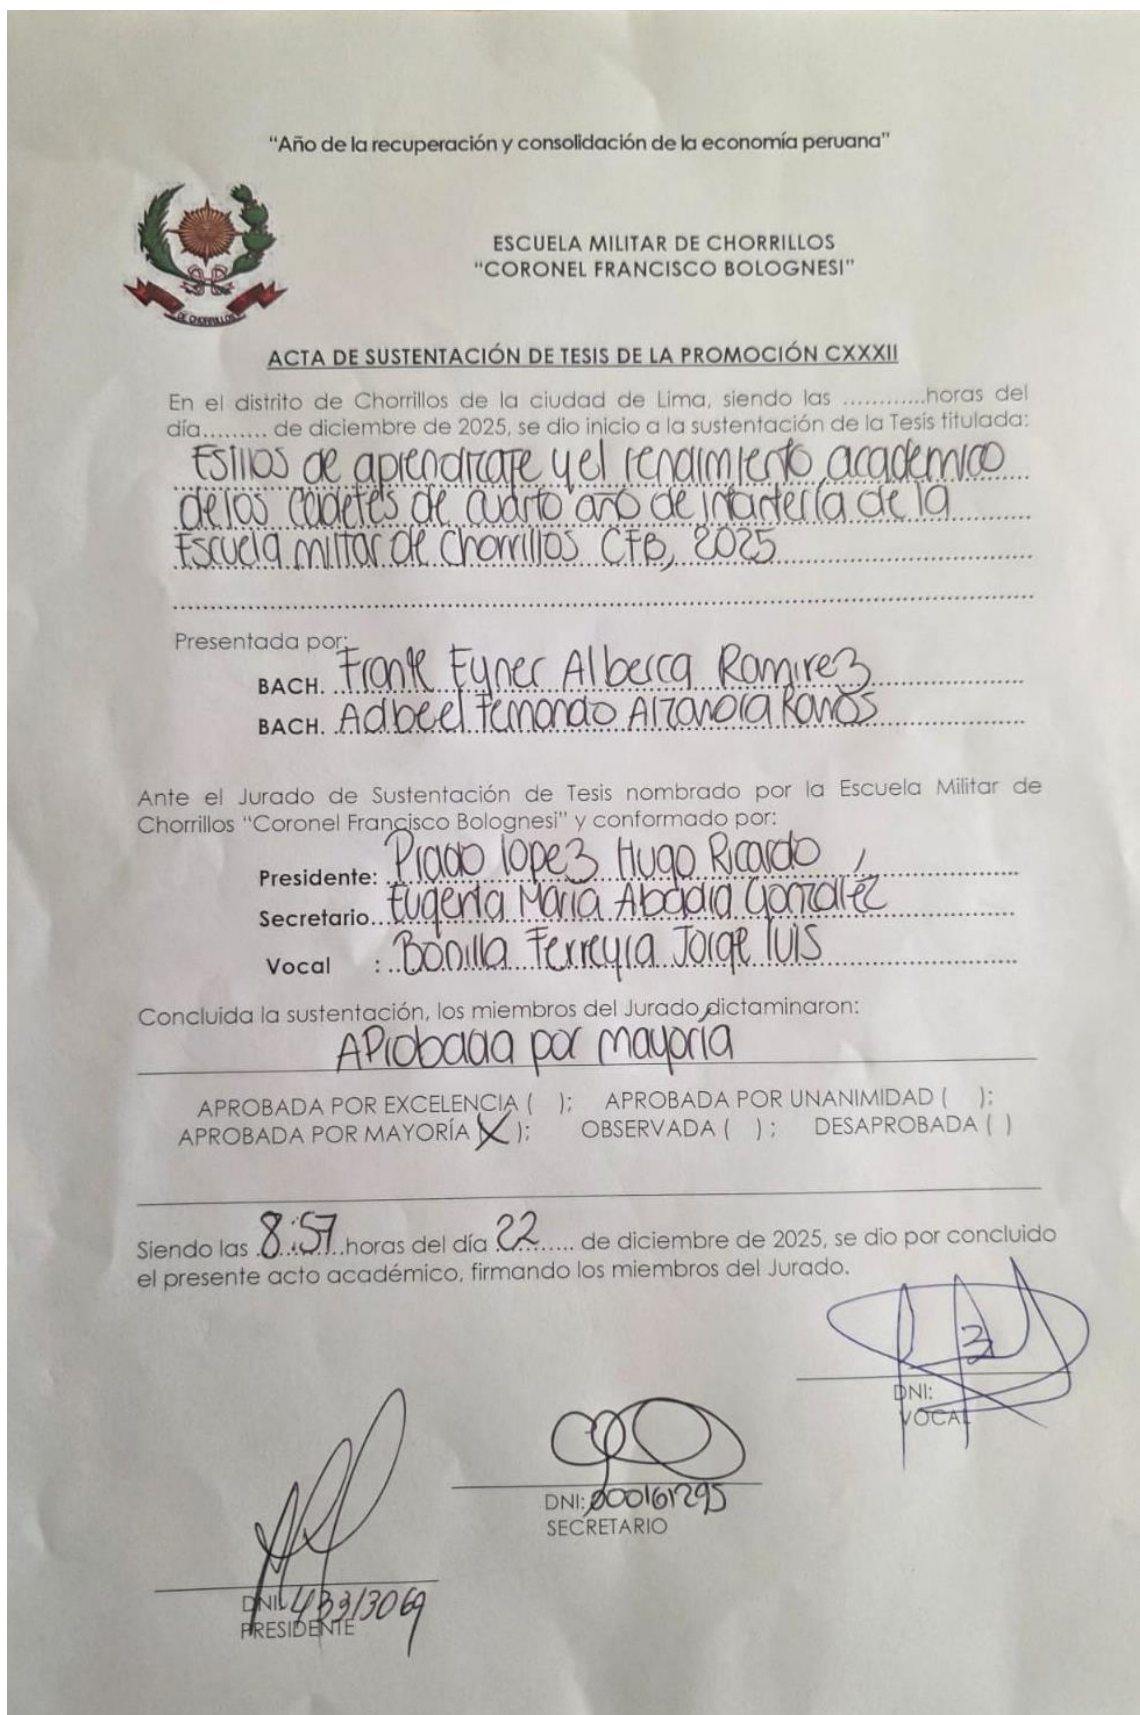 "Año de la recuperación y consolidación de la economía peruana"
DE CHORRILLOS
ESCUELA MILITAR DE CHORRILLOS
"CORONEL FRANCISCO BOLOGNESI"
ACTA DE SUSTENTACIÓN DE TESIS DE LA PROMOCIÓN CXXXII
En el distrito de Chorrillos de la ciudad de Lima, siendo las ............horas del
día......... de diciembre de 2025, se dio inicio a la sustentación de la Tesis titulada:
Estilos de aprendizaje y el rendimiento academico
de los cadetes de cuarto año de infantería de la
Escuela militar de Chorrillos CFB, 2025
Presentada por:
BACH. Frank Eyner Alberca Ramirez
BACH. Adbeel Fernando Ramos
Ante el Jurado de Sustentación de Tesis nombrado por la Escuela Militar de
Chorrillos "Coronel Francisco Bolognesi" y conformado por:
Presidente: Prado lopez Hugo Ricardo
Secretario Eugenia Maria Abadia Gonzaléz
Vocal : Bonilla Ferreyra Jorge luis
Concluida la sustentación, los miembros del Jurado dictaminaron:
AProbada por mayoría
APROBADA POR EXCELENCIA ( ); APROBADA POR UNANIMIDAD ( );
APROBADA POR MAYORÍA (X); OBSERVADA ( ); DESAPROBADA ( )
Siendo las 8:57 horas del día 22 de diciembre de 2025, se dio por concluido
el presente acto académico, firmando los miembros del Jurado.
DNI:
VOCAL
DNI: 000161295
SECRETARIO
DNI: 43313069
PRESIDENTE